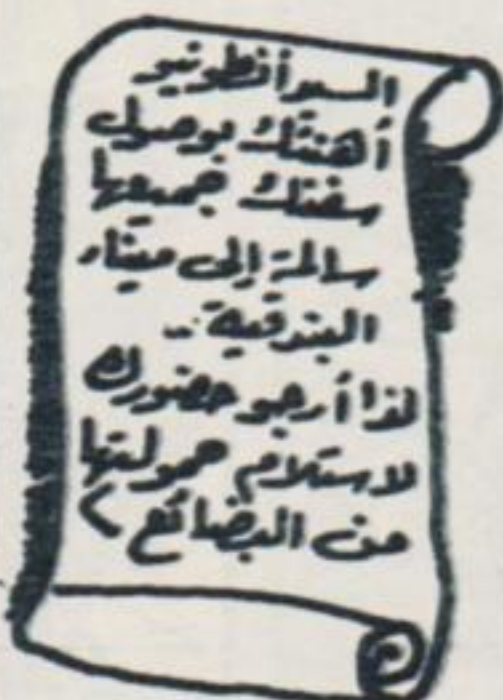 السيد أنطونيو
أهنئك بوصول
سفنك جميعها
سالمة إلى ميناء
البندقية ..
لذا أرجو حضورك
لاستلام حمولتها
من البضائع >